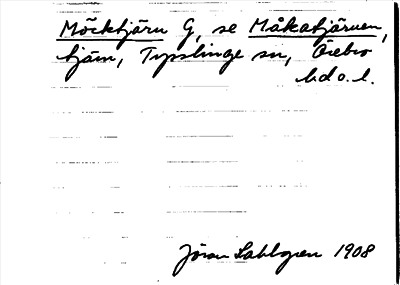 Möcktjärn G, se Måkatjärnen,
tjärn, Tysslinge sn, Örebro
hd o. l.
Jöran Sahlgren 1908